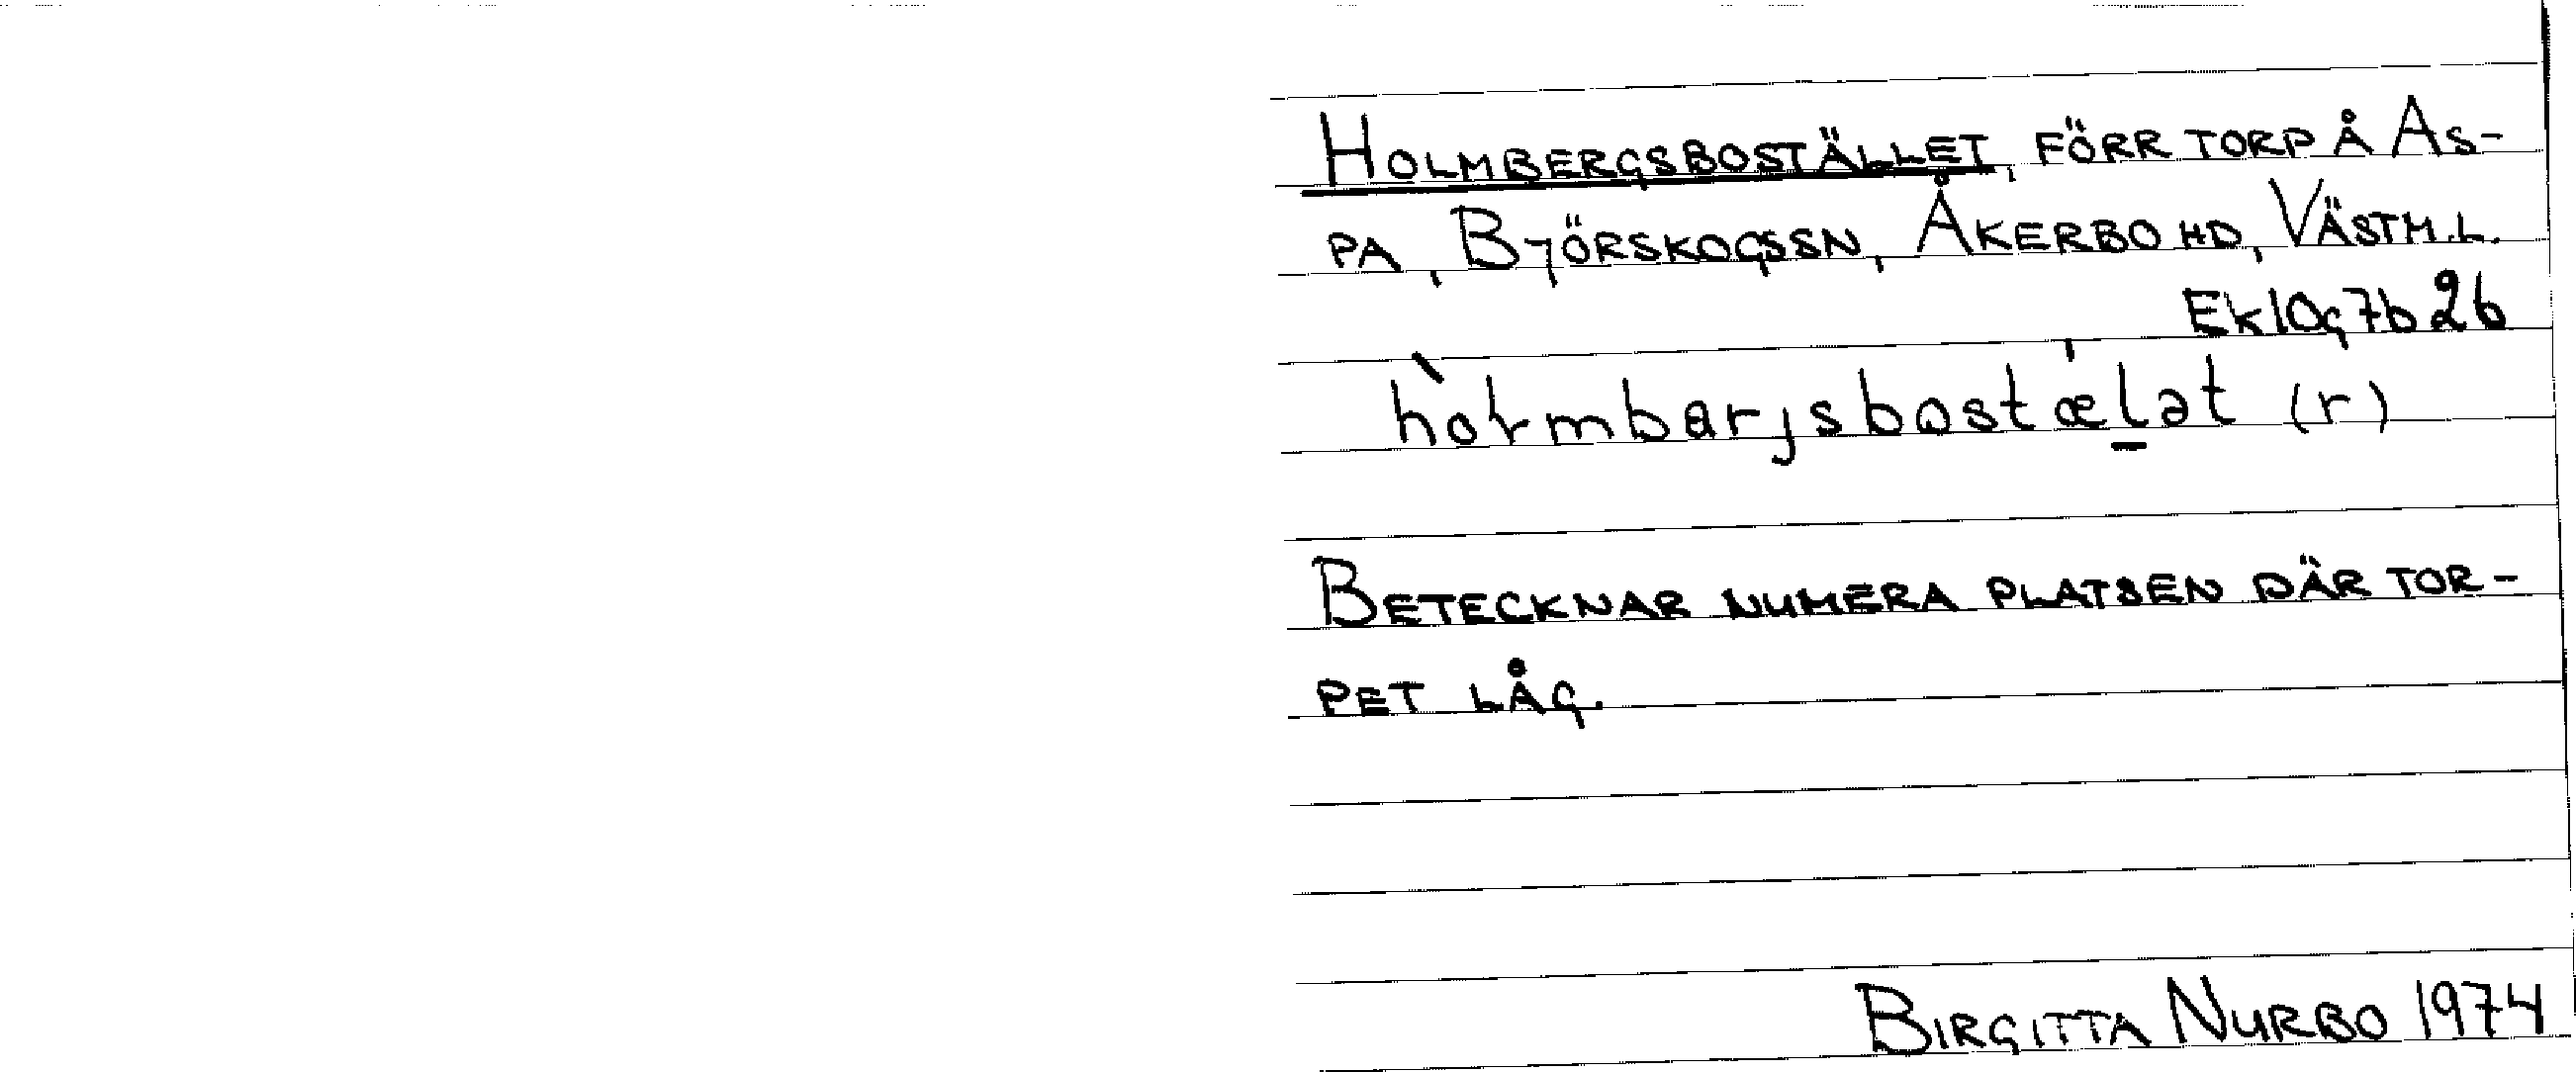 HOLMBERGSBOSTÄLLET, FÖRR TORP Å AS-
PA, BJÖRSKOGSSN, ÅKERBO HD, VÄSTM.L.
EK 10g7b 26
(r)
BETECKNAR NUMERA PLATSEN DÄR TOR-
PET LÅG.
BIRGITTA NURBO 1974